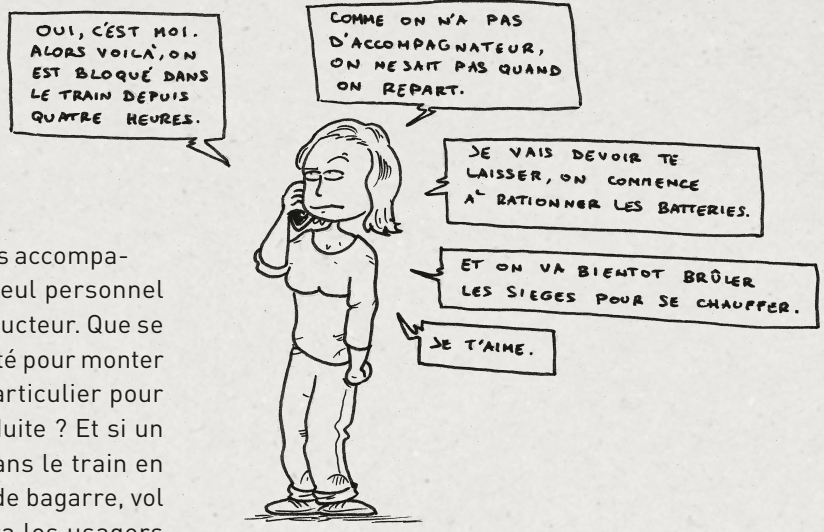 OUI, C'EST MOI.
ALORS VOILÀ, ON
EST BLOQUÉ DANS
LE TRAIN DEPUIS
QUATRE HEURES.
COMME ON N'A PAS
D'ACCOMPAGNATEUR,
ON NE SAIT PAS QUAND
ON REPART.
JE VAIS DEVOIR TE
LAISSER, ON COMMENCE
À RATIONNER LES BATTERIES.
ET ON VA BIENTOT BRÛLER
LES SIEGES POUR SE CHAUFFER.
JE T'AIME.
s accompa-
eul personnel
ucteur. Que se
té pour monter
articulier pour
duite ? Et si un
ans le train en
de bagarre, vol
a les usagers